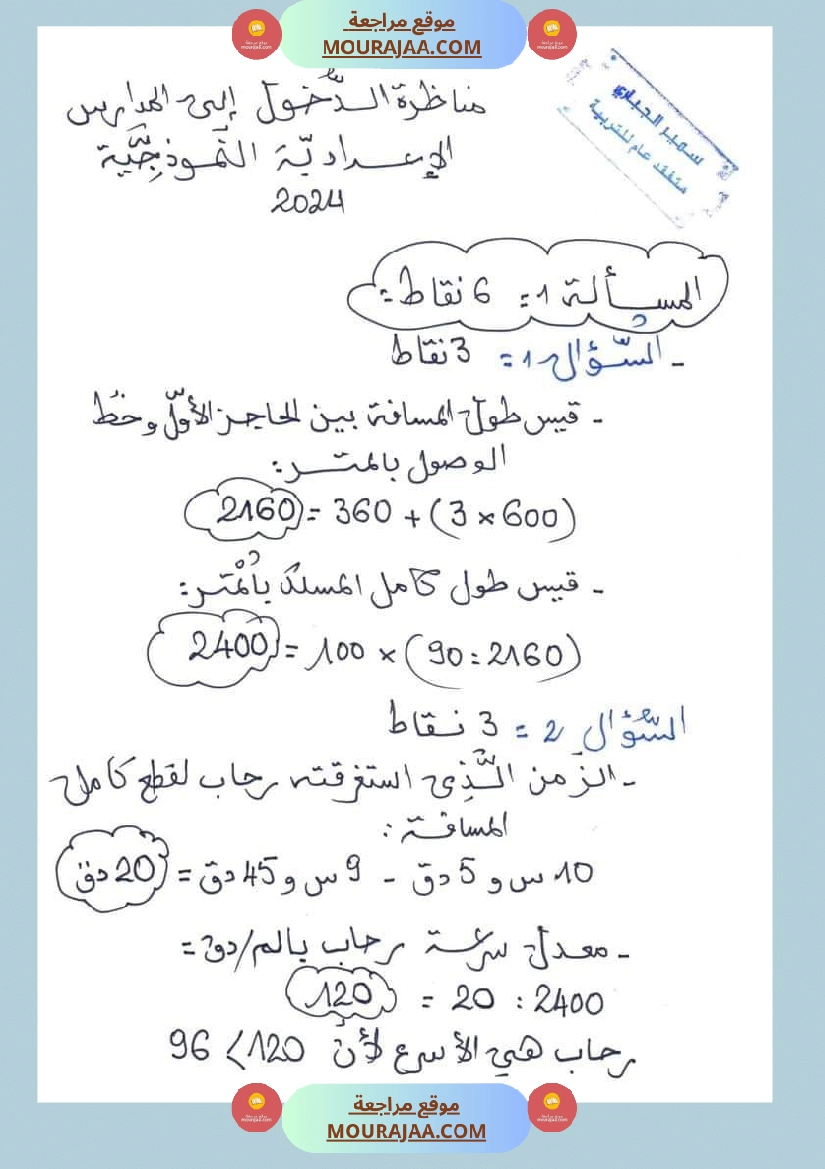 موقع مراجعة
MOURAJAA.COM
سمير الجباري
متفقد عام للتربية
مناظرة الدّخول إلى المدارس
الإعداديّة النّموذجيّة
2024
المسألة 1: 6 نقاط:
- السّؤال 1 = 3 نقاط
- قيس طول المسافة بين الحاجز الأوّل وخطّ
الوصول بالمتر:
(600 × 3) + 360 = 2160
- قيس طول كامل المسلك بالمتر:
(2160 : 90) × 100 = 2400
السّؤال 2 = 3 نقاط
- الزّمن الّذي استغرقته رحاب لقطع كامل
المسافة :
10 س و 5 دق - 9 س و 45 دق = 20 دق
- معدل سرعة رحاب بالم/دق =
2400 : 20 = 120
رحاب هي الأسرع لأنّ 120 > 96
موقع مراجعة
MOURAJAA.COM